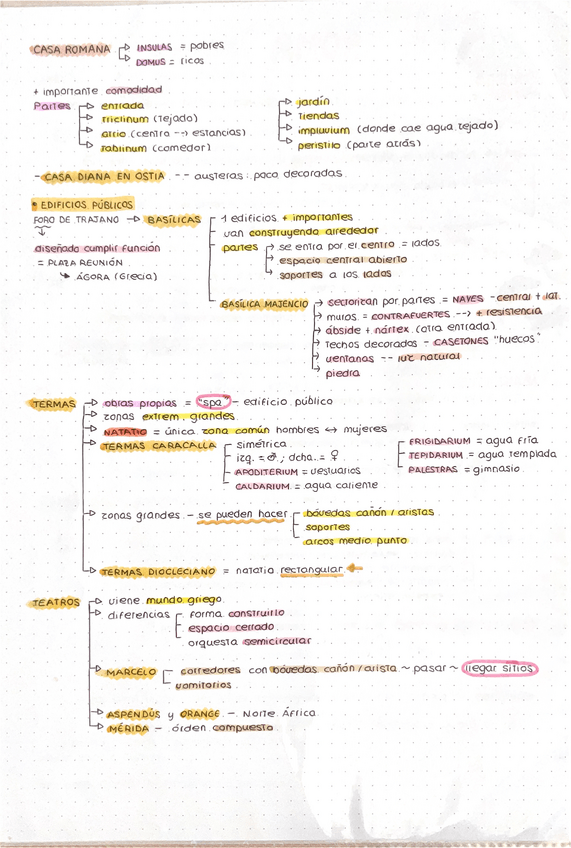 CASA ROMANA → INSULAS = pobres
→ DOMUS = ricos
+ importante comodidad
Partes → entrada
→ triclinum (tejado)
→ atrio (centro --> estancias)
→ tablinum (comedor)
→ jardín
→ tiendas
→ impluvium (donde cae agua tejado)
→ peristilo (parte atrás)
- CASA DIANA EN OSTIA -- austeras: poco decoradas
• EDIFICIOS PÚBLICOS
FORO DE TRAJANO → BASÍLICAS
diseñado cumplir función
= PLAZA REUNIÓN
↳ ÁGORA (Grecia)
1 edificios + importantes
van construyendo alrededor
partes → se entra por el centro = lados
→ espacio central abierto
→ soportes a los lados
BASÍLICA MAJENCIO → sectorizan por partes = NAVES - central + lat.
→ muros = CONTRAFUERTES --> + resistencia
→ ábside + nártex (otra entrada)
→ techos decorados - CASETONES "huecos"
→ ventanas -- luz natural
→ piedra
TERMAS → obras propias = "spa" - edificio público
→ zonas extrem. grandes
→ NATATIO = única zona común hombres ↔ mujeres
→ TERMAS CARACALLA
simétrica
izq. = ♂; dcha. = ♀
APODITERIUM = vestuarios
CALDARIUM = agua caliente
FRIGIDARIUM = agua fría
TEPIDARIUM = agua templada
PALESTRAS = gimnasio
→ zonas grandes - se pueden hacer
bóvedas cañón / aristas
soportes
arcos medio punto
→ TERMAS DIOCLECIANO = natatio rectangular
TEATROS → viene mundo griego
→ diferencias
forma construirlo
espacio cerrado
orquesta semicircular
→ MARCELO
corredores con bóvedas cañón / arista ~ pasar ~ llegar sitios
vomitorios
→ ASPENDUS y ORANGE - Norte África
→ MÉRIDA - órden compuesto